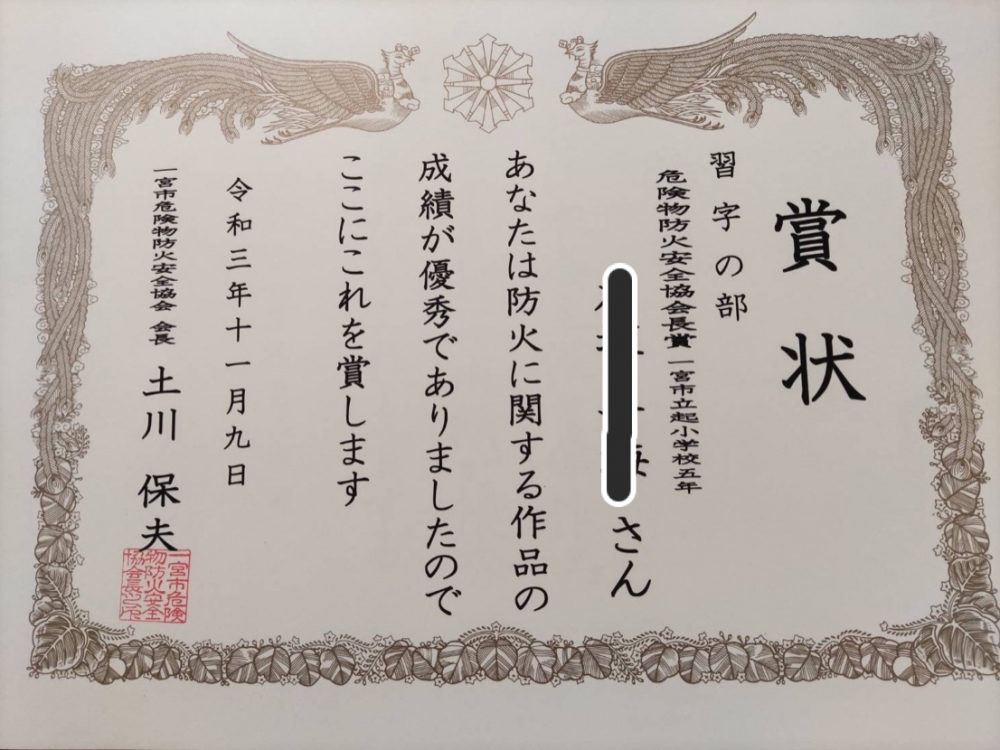 賞状
習字の部
危険物防火安全協会長賞 一宮市立起小学校五年
さん
あなたは防火に関する作品の
成績が優秀でありましたので
ここにこれを賞します
令和三年十一月九日
一宮市危険物防火安全協会 会長 土川 保夫
一宮市危険
物防火安全